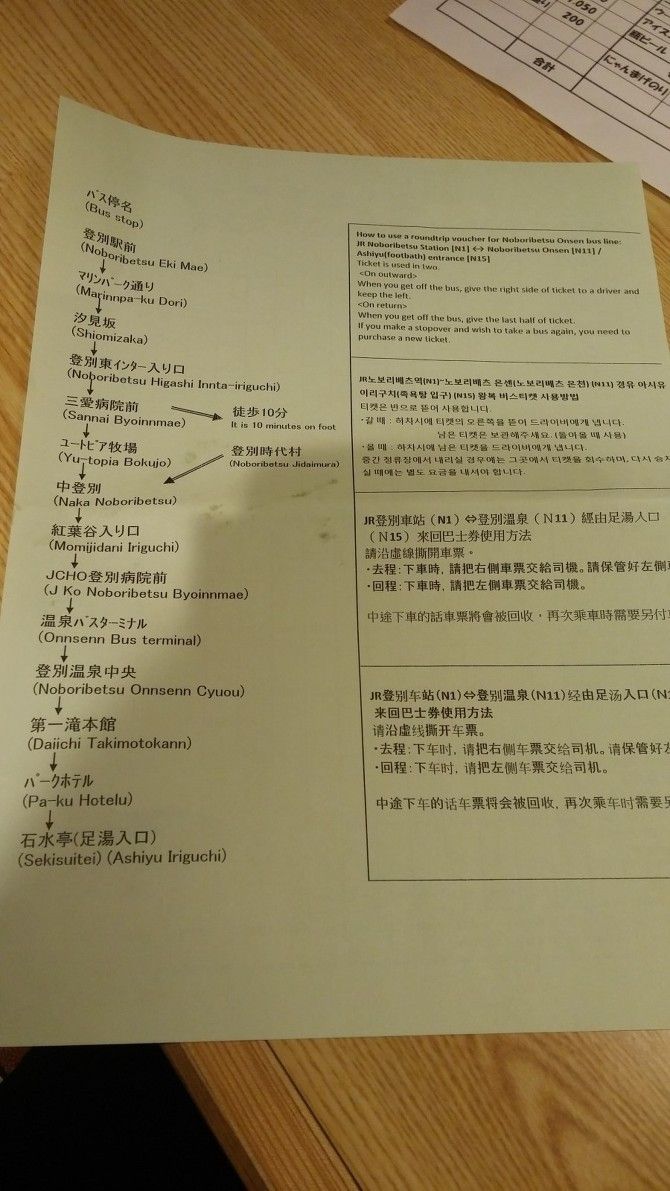 バス停名
(Bus stop)
登別駅前
(Noboribetsu Eki Mae)
マリンパーク通り
(Marinnpa-ku Dori)
汐見坂
(Shiomizaka)
登別東インター入り口
(Noboribetsu Higashi Innta-iriguchi)
三愛病院前
(Sannai Byoinnmae)
徒歩10分
It is 10 minutes on foot
ユートピア牧場
(Yu-topia Bokujo)
登別時代村
(Noboribetsu Jidaimura)
中登別
(Naka Noboribetsu)
紅葉谷入り口
(Momijidani Iriguchi)
JCHO登別病院前
(J Ko Noboribetsu Byoinnmae)
温泉バスターミナル
(Onnsenn Bus terminal)
登別温泉中央
(Noboribetsu Onnsenn Cyuou)
第一滝本館
(Daiichi Takimotokann)
パークホテル
(Pa-ku Hotelu)
石水亭(足湯入口)
(Sekisuitei) (Ashiyu Iriguchi)
How to use a roundtrip voucher for Noboribetsu Onsen bus line:
JR Noboribetsu Station [N1] ⇔ Noboribetsu Onsen [N11] /
Ashiyu(footbath) entrance [N15]
Ticket is used in two.
<On outward>
When you get off the bus, give the right side of ticket to a driver and
keep the left.
<On return>
When you get off the bus, give the last half of ticket.
If you make a stopover and wish to take a bus again, you need to
purchase a new ticket.
JR노보리베츠역(N1)-노보리베츠 온센(노보리베츠 온천) (N11) 경유 아시유
이리구치(족욕탕 입구) (N15) 왕복 버스티켓 사용방법
티켓은 반으로 뜯어 사용합니다.
·갈 때 : 하차시에 티켓의 오른쪽을 뜯어 드라이버에게 냅니다.
남은 티켓은 보관해주세요. (돌아올 때 사용)
·올 때 : 하차시에 남은 티켓을 드라이버에게 냅니다.
중간 정류장에서 내리실 경우에는 그곳에서 티켓을 회수하며, 다시 승차
실 때에는 별도 요금을 내셔야 합니다.
JR登別車站（N1）⇔登別溫泉（N11）經由足湯入口
（N15）來回巴士券使用方法
請沿虛線撕開車票。
・去程：下車時, 請把右側車票交給司機。請保管好左側
・回程：下車時, 請把左側車票交給司機。
中途下車的話車票將會被回收，再次乘車時需要另付
JR登别车站(N1)⇔登别温泉(N11)经由足汤入口(N1
来回巴士券使用方法
请沿虚线撕开车票。
・去程：下车时, 请把右侧车票交给司机。请保管好左
・回程：下车时, 请把左侧车票交给司机。
中途下车的话车票将会被回收, 再次乘车时需要另
,050
200
合計
アイス
瓶ビール
にゃんまげのり